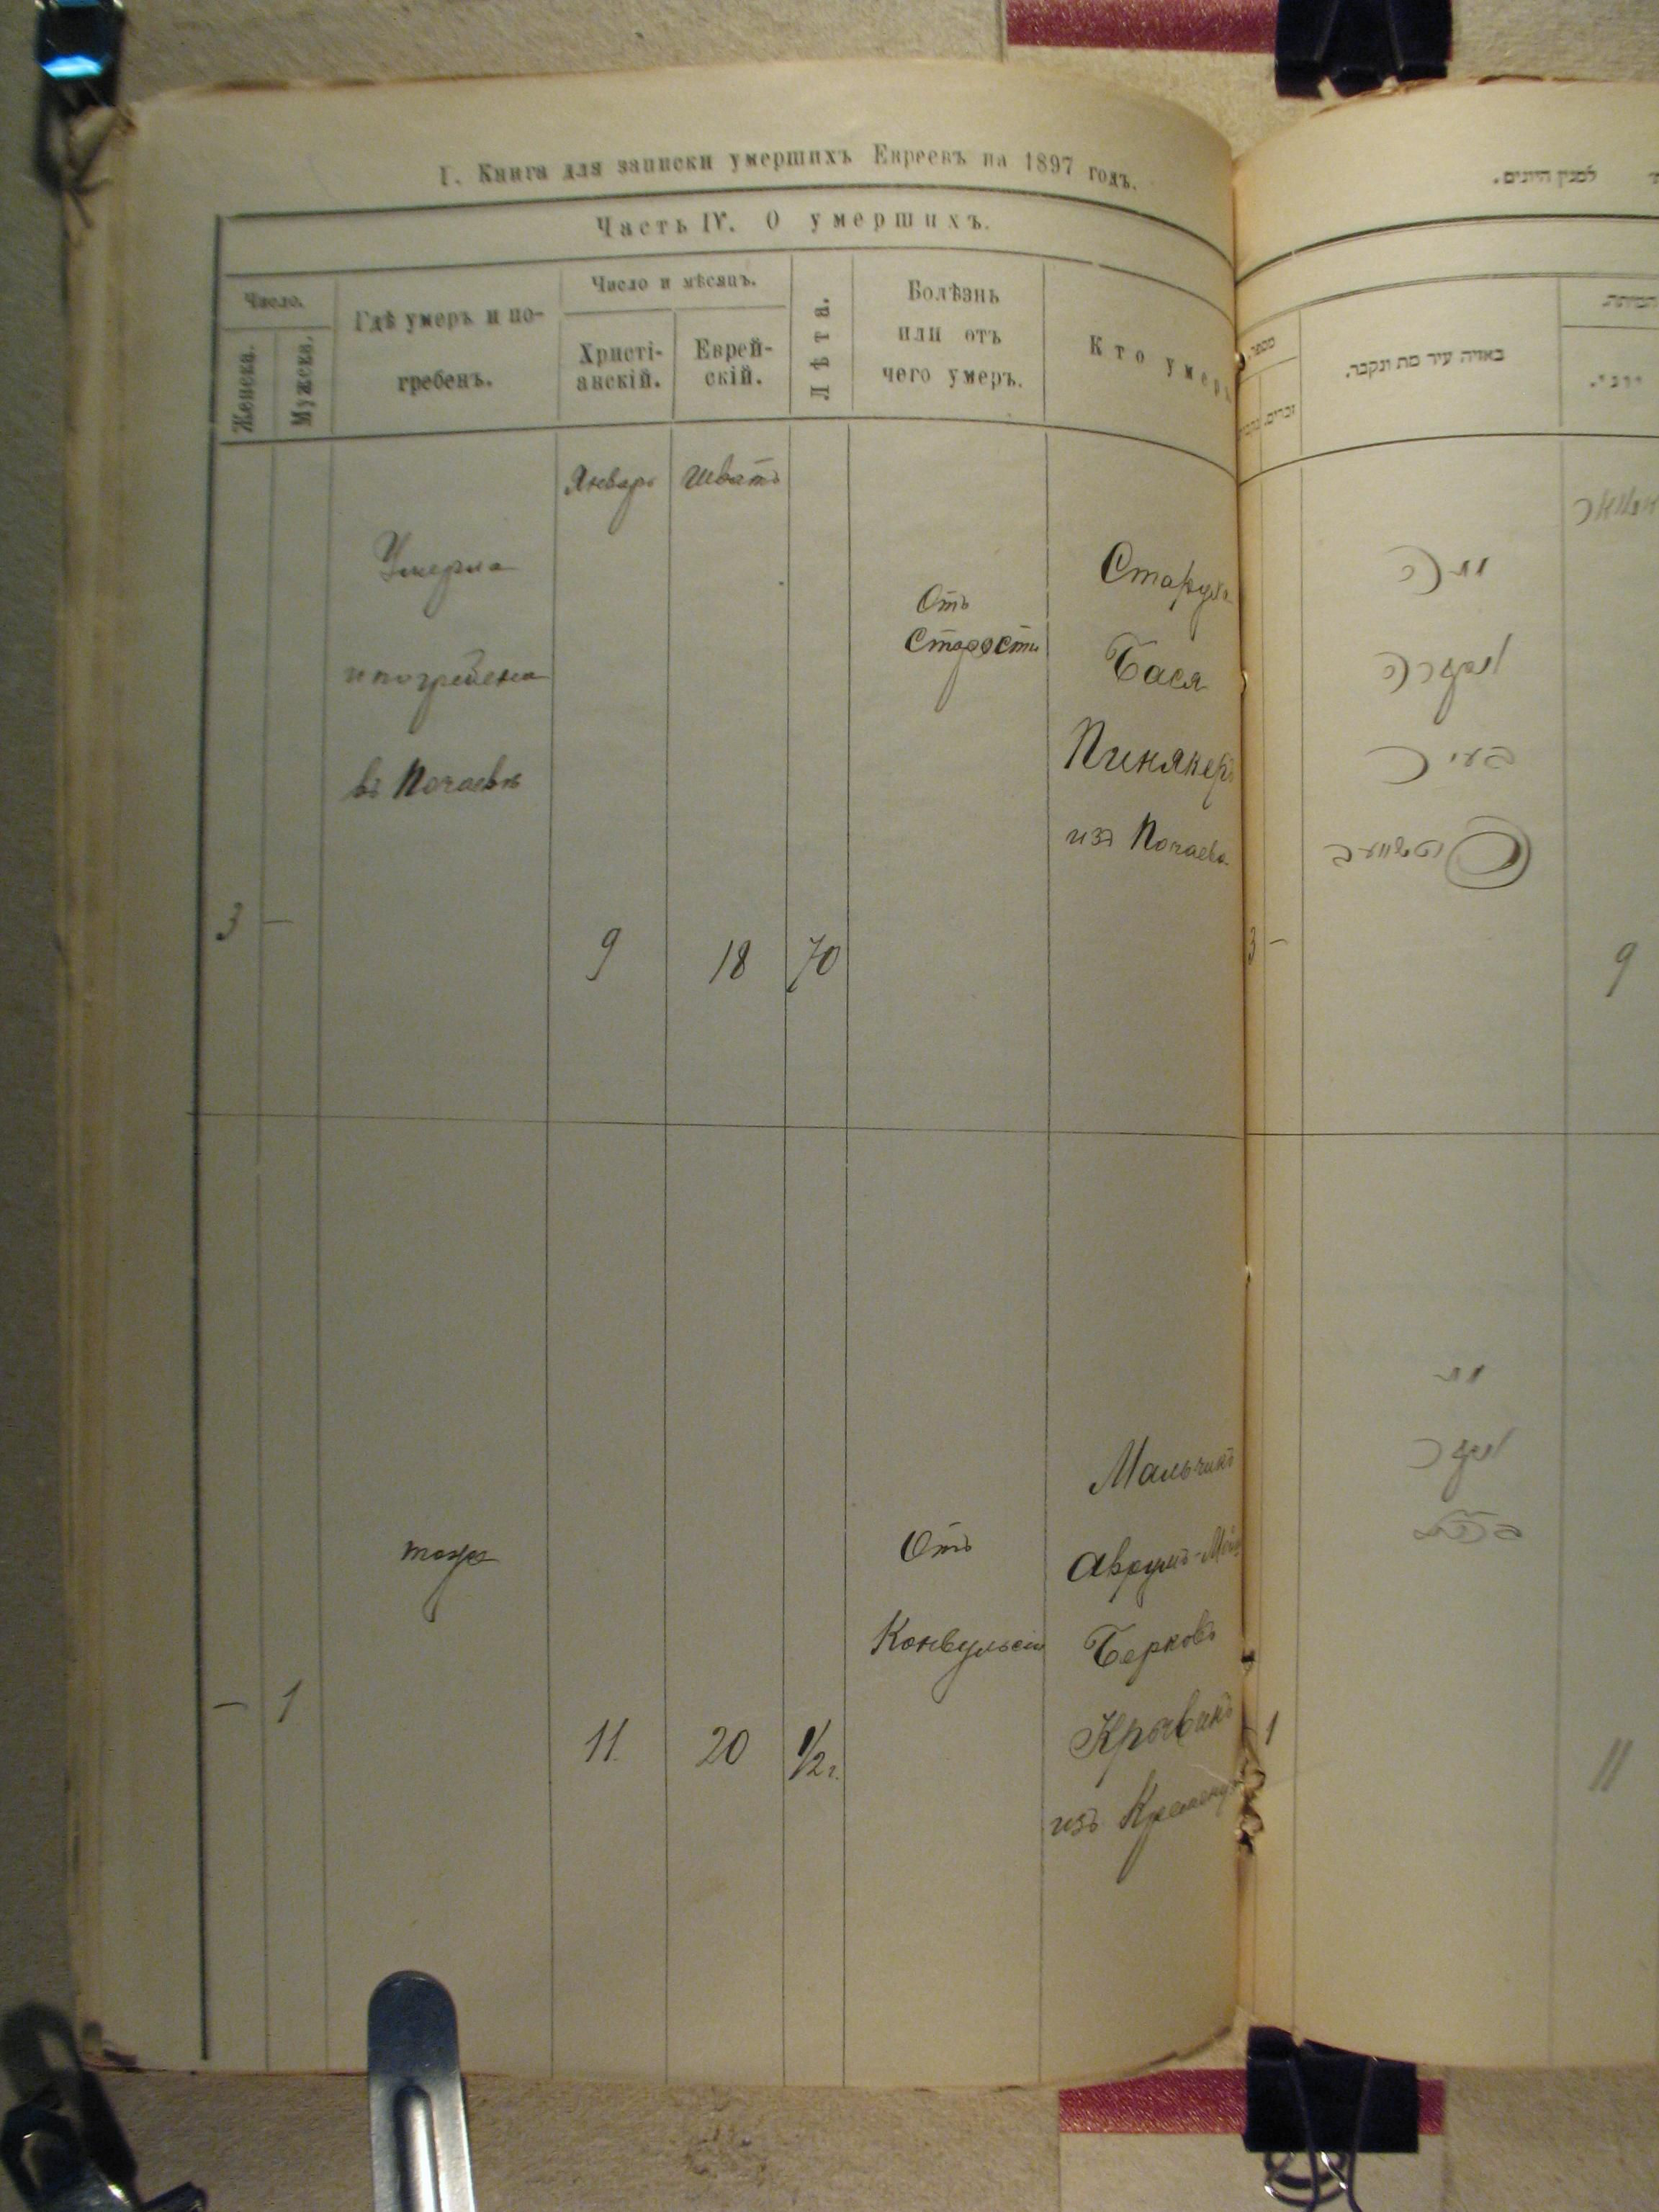 I. Книга для записки умершихъ Евреевъ на 1897 годъ.
Часть IV. О умершихъ.
Число.
Женска.
Мужска.
Гдѣ умеръ и по-
гребенъ.
Число и мѣсяцъ.
Христі-
анскій.
Еврей-
скій.
Лѣта.
Болѣзнь
или отъ
чего умеръ.
Кто умеръ
Январь
Шватъ
Умерла
и погребена
въ Почаевѣ
3
—
9
18
70
Отъ
Старости
Старуха
Бася
Пинякеръ
изъ Почаева
—
1
тоже
11.
20
1/2 г.
Отъ
Конвульсіи
Мальчикъ
Аврумъ-
Берковъ
изъ
למנין היונים.
מספר.
זכרים.
באויה עיר מת ונקבר.
יוני.
3 —
9
מתה
ונקברה
בעיר
מת
ונקבר
1
11